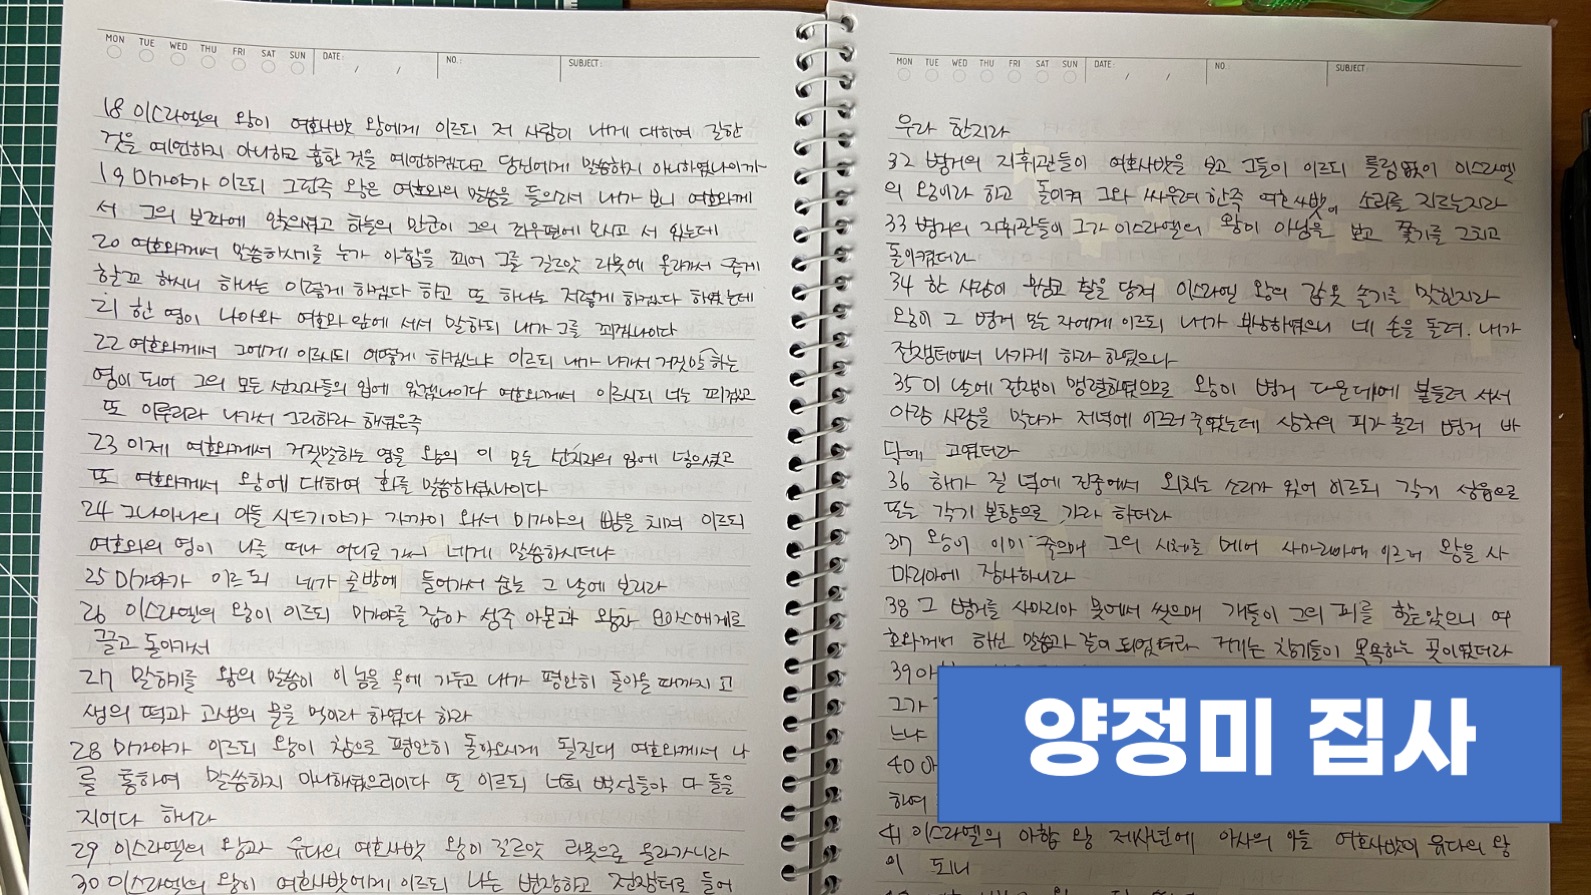 MON TUE WED THU FRI SAT SUN DATE: / / NO.: SUBJECT:
18 이스라엘의 왕이 여호사밧 왕에게 이르되 저 사람이 내게 대하여 길한
것을 예언하지 아니하고 흉한 것을 예언하겠다고 당신에게 말씀하지 아니하였나이까
19 미가야가 이르되 그런즉 왕은 여호와의 말씀을 들으소서 내가 보니 여호와께
서 그의 보좌에 앉으셨고 하늘의 만군이 그의 좌우편에 모시고 서 있는데
20 여호와께서 말씀하시기를 누가 아합을 꾀어 그를 길르앗 라못에 올라가서 죽게
할꼬 하시니 하나는 이렇게 하겠다 하고 또 하나는 저렇게 하겠다 하였는데
21 한 영이 나아와 여호와 앞에 서서 말하되 내가 그를 꾀겠나이다
22 여호와께서 그에게 이르시되 어떻게 하겠느냐 이르되 내가 나가서 거짓말하는
영이 되어 그의 모든 선지자들의 입에 있겠나이다 여호와께서 이르시되 너는 꾀겠고
또 이루리라 나가서 그리하라 하셨은즉
23 이제 여호와께서 거짓말하는 영을 왕의 이 모든 선지자의 입에 넣으셨고
또 여호와께서 왕에 대하여 화를 말씀하셨나이다
24 그나아나의 아들 시드기야가 가까이 와서 미가야의 뺨을 치며 이르되
여호와의 영이 나를 떠나 어디로 가서 네게 말씀하시더냐
25 미가야가 이르되 네가 골방에 들어가서 숨는 그 날에 보리라
26 이스라엘의 왕이 이르되 미가야를 잡아 성주 아몬과 왕자 요아스에게로
끌고 돌아가서
27 말하기를 왕의 말씀이 이 놈을 옥에 가두고 내가 평안히 돌아올 때까지 고
생의 떡과 고생의 물을 먹이라 하였다 하라
28 미가야가 이르되 왕이 참으로 평안히 돌아오시게 될진대 여호와께서 나
를 통하여 말씀하지 아니하셨으리이다 또 이르되 너희 백성들아 다 들을
지어다 하니라
29 이스라엘의 왕과 유다의 여호사밧 왕이 길르앗 라못으로 올라가니라
30 이스라엘의 왕이 여호사밧에게 이르되 나는 변장하고 전쟁터로 들어
MON TUE WED THU FRI SAT SUN DATE: / / NO.: SUBJECT:
우라 한지라
32 병거의 지휘관들이 여호사밧을 보고 그들이 이르되 틀림없이 이스라엘
의 왕이라 하고 돌이켜 그와 싸우려 한즉 여호사밧이 소리를 지르는지라
33 병거의 지휘관들이 그가 이스라엘의 왕이 아님을 보고 쫓기를 그치고
돌이켰더라
34 한 사람이 무심코 활을 당겨 이스라엘 왕의 갑옷 솔기를 맞힌지라
왕이 그 병거 모는 자에게 이르되 내가 부상하였으니 네 손을 돌려 내가
전쟁터에서 나가게 하라 하였으나
35 이 날에 전쟁이 맹렬하였으므로 왕이 병거 가운데에 붙들려 서서
아람 사람을 막다가 저녁에 이르러 죽었는데 상처의 피가 흘러 병거 바
닥에 고였더라
36 해가 질 녘에 진중에서 외치는 소리가 있어 이르되 각기 성읍으로
또는 각기 본향으로 가라 하더라
37 왕이 이미 죽으매 그의 시체를 메어 사마리아에 이르러 왕을 사
마리아에 장사하니라
38 그 병거를 사마리아 못에서 씻으매 개들이 그의 피를 핥았으니 여
호와께서 하신 말씀과 같이 되었더라 거기는 창기들이 목욕하는 곳이었더라
39 아
그가
느냐
40 아
하여
양정미 집사
41 이스라엘의 아합 왕 제사년에 아사의 아들 여호사밧이 유다의 왕
이 되니